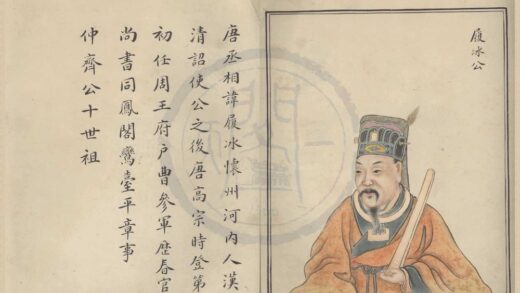 履冰公
唐丞相諱履冰懷州河內人漢
清詔使公之後唐高宗時登第
初任周王府戶曹參軍歷春官
尚書同鳳閣鸞臺平章事
仲齊公十世祖